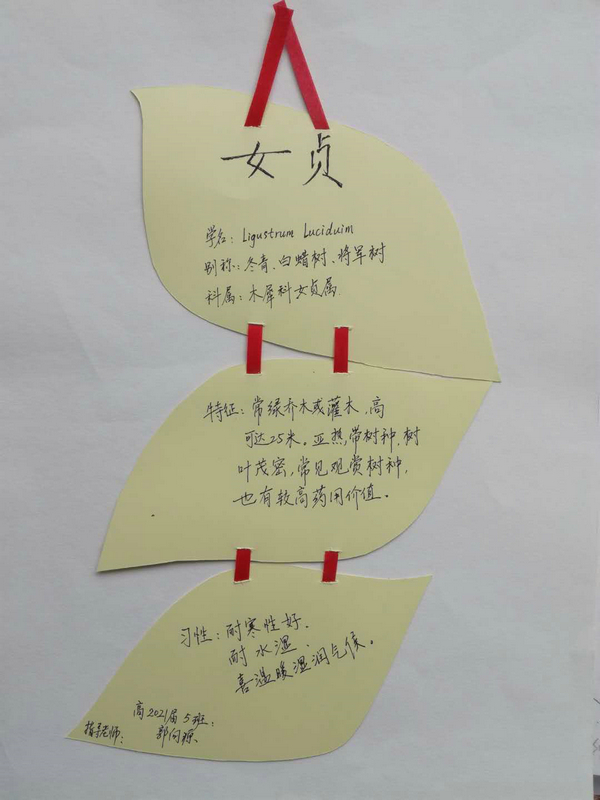 女贞
学名：Ligustrum Luciduim
别称：冬青、白蜡树、将军树
科属：木犀科女贞属
特征：常绿乔木或灌木，高
可达25米。亚热带树种，树
叶茂密，常见观赏树种，
也有较高药用价值。
习性：耐寒性好，
耐水湿，
喜温暖湿润气候。
高2021届5班：
指导老师：